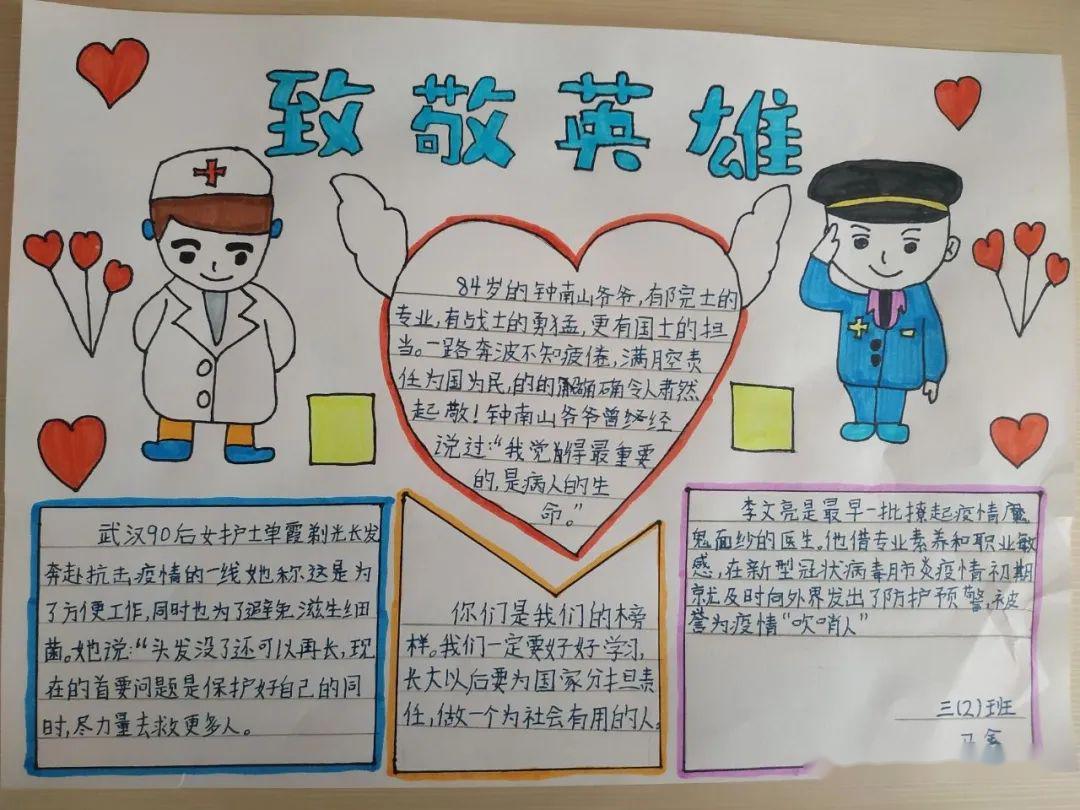 致敬英雄
84岁的钟南山爷爷,有院士的
专业,有战士的勇猛,更有国士的担
当。一路奔波不知疲倦,满月空责
任为国为民,的的确确令人肃然
起敬!钟南山爷爷曾经
说过:“我觉得最重要
的,是病人的生
命。”
武汉90后女护士单霞剃光长发
奔赴抗击疫情的一线她称这是为
了方便工作,同时也为了避免滋生细
菌。她说:“头发没了还可以再长,现
在的首要问题是保护好自己的同
时,尽力量去救更多人。
你们是我们的榜
样。我们一定要好好学习,
长大以后要为国家分担责
任,做一个为社会有用的人。
李文亮是最早一批撩起疫情魔
鬼面纱的医生。他借专业素养和职业敏
感,在新型冠状病毒肺炎疫情初期
就及时向外界发出了防护预警,被
誉为疫情“吹哨人”
三(2)班